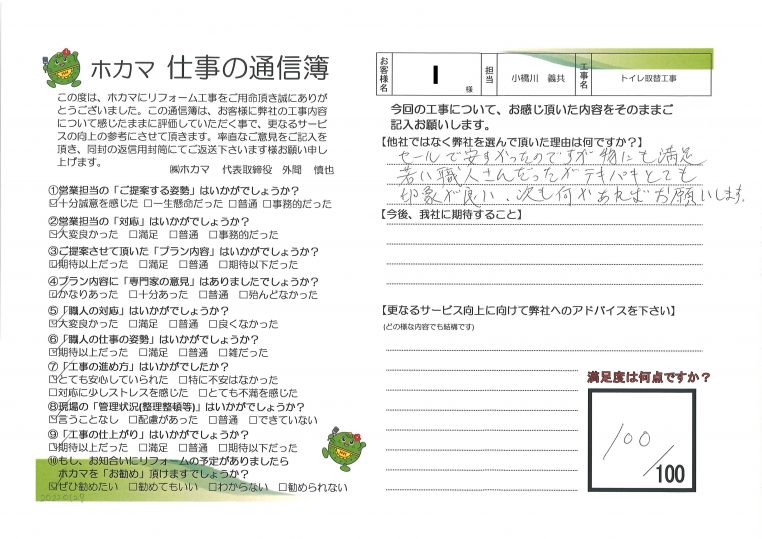 ホカマ 仕事の通信簿
この度は、ホカマにリフォーム工事をご用命頂き誠にありが
とうございました。この通信簿は、お客様に弊社の工事内容
について感じたままに評価していただく事で、更なるサービ
スの向上の参考にさせて頂きます。率直なご意見をご記入を
頂き、同封の返信用封筒にてご返送下さいます様お願い申
し上げます。
㈱ホカマ 代表取締役 外間 慎也
①営業担当の「ご提案する姿勢」はいかがでしょうか?
☑十分誠意を感じた □一生懸命だった □普通 □事務的だった
②営業担当の「対応」はいかがでしょうか?
☑大変良かった □満足 □普通 □事務的だった
③ご提案させて頂いた「プラン内容」はいかがでしょうか?
☑期待以上だった □満足 □普通 □期待以下だった
④プラン内容に「専門家の意見」はありましたでしょうか?
☑かなりあった □十分あった □普通 □殆んどなかった
⑤「職人の対応」はいかがでしょうか?
☑大変良かった □満足 □普通 □良くなかった
⑥「職人の仕事の姿勢」はいかがでしょうか?
☑期待以上だった □満足 □普通 □雑だった
⑦「工事の進め方」はいかがでしたか?
☑とても安心していられた □特に不安はなかった
□対応に少しストレスを感じた □とても不満を感じた
⑧現場の「管理状況(整理整頓等)」はいかがでしょうか?
☑言うことなし □配慮があった □普通 □できていない
⑨「工事の仕上がり」はいかがでしょうか?
☑期待以上だった □満足 □普通 □期待以下だった
⑩もし、お知合いにリフォームの予定がありましたら
ホカマを「お勧め」頂けますでしょうか?
☑ぜひ勧めたい □勧めてもいい □わからない □勧められない
お客様名 I 様 担当 小橋川 義共 工事名 トイレ取替工事
今回の工事について、お感じ頂いた内容をそのままご
記入お願いします。
【他社ではなく弊社を選んで頂いた理由は何ですか?】
セールで安かったのですが物にも満足
若い職人さんだったがテキパキとても
印象が良い、次も何かあればお願いします。
【今後、我社に期待すること】
【更なるサービス向上に向けて弊社へのアドバイスを下さい】
(どの様な内容でも結構です)
満足度は何点ですか?
100/100